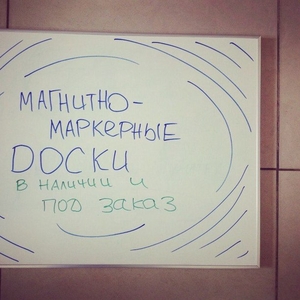 МАГНИТНО-
МАРКЕРНЫЕ
ДОСКИ
В НАЛИЧИИ И
ПОД ЗАКАЗ